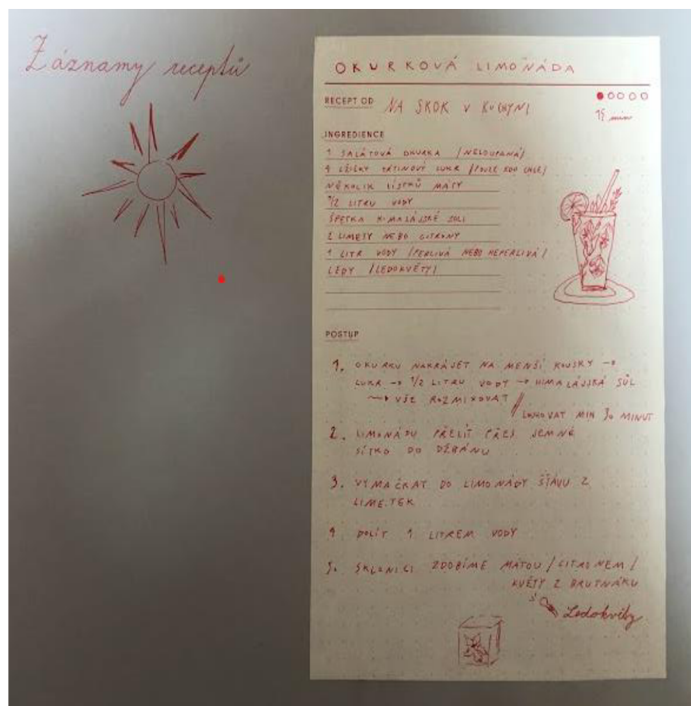 Záznamy receptů
OKURKOVÁ LIMOŇÁDA
RECEPT OD NA SKOK V KUCHYNI
15 min
INGREDIENCE
1 SALÁTOVÁ OKURKA /NELOUPANÁ/
4 LŽIČKY TŘTINOVÝ CUKR /PODLE KDO CHCE/
NĚKOLIK LÍSTKŮ MÁTY
1/2 LITRU VODY
ŠPETKA HIMALÁJSKÉ SOLI
2 LIMETY NEBO CITRONY
1 LITR VODY /PERLIVÁ NEBO NEPERLIVÁ/
LEDY /LEDOKVĚTY/
POSTUP
1. OKURKU NAKRÁJET NA MENŠÍ KOUSKY →
CUKR → 1/2 LITRU VODY → HIMALÁJSKÁ SŮL
→ VŠE ROZMIXOVAT
// LUHOVAT MIN 30 MINUT
2. LIMONÁDU PŘELÍT PŘES JEMNÉ
SÍTKO DO DŽBÁNU
3. VYMAČKAT DO LIMONÁDY ŠŤÁVU Z
LIMETEK
4. DOLÍT 1 LITREM VODY
5. SKLENICI ZDOBÍME MÁTOU / CITRONEM /
KVĚTY Z BRUTNÁKU
Ledokvěty